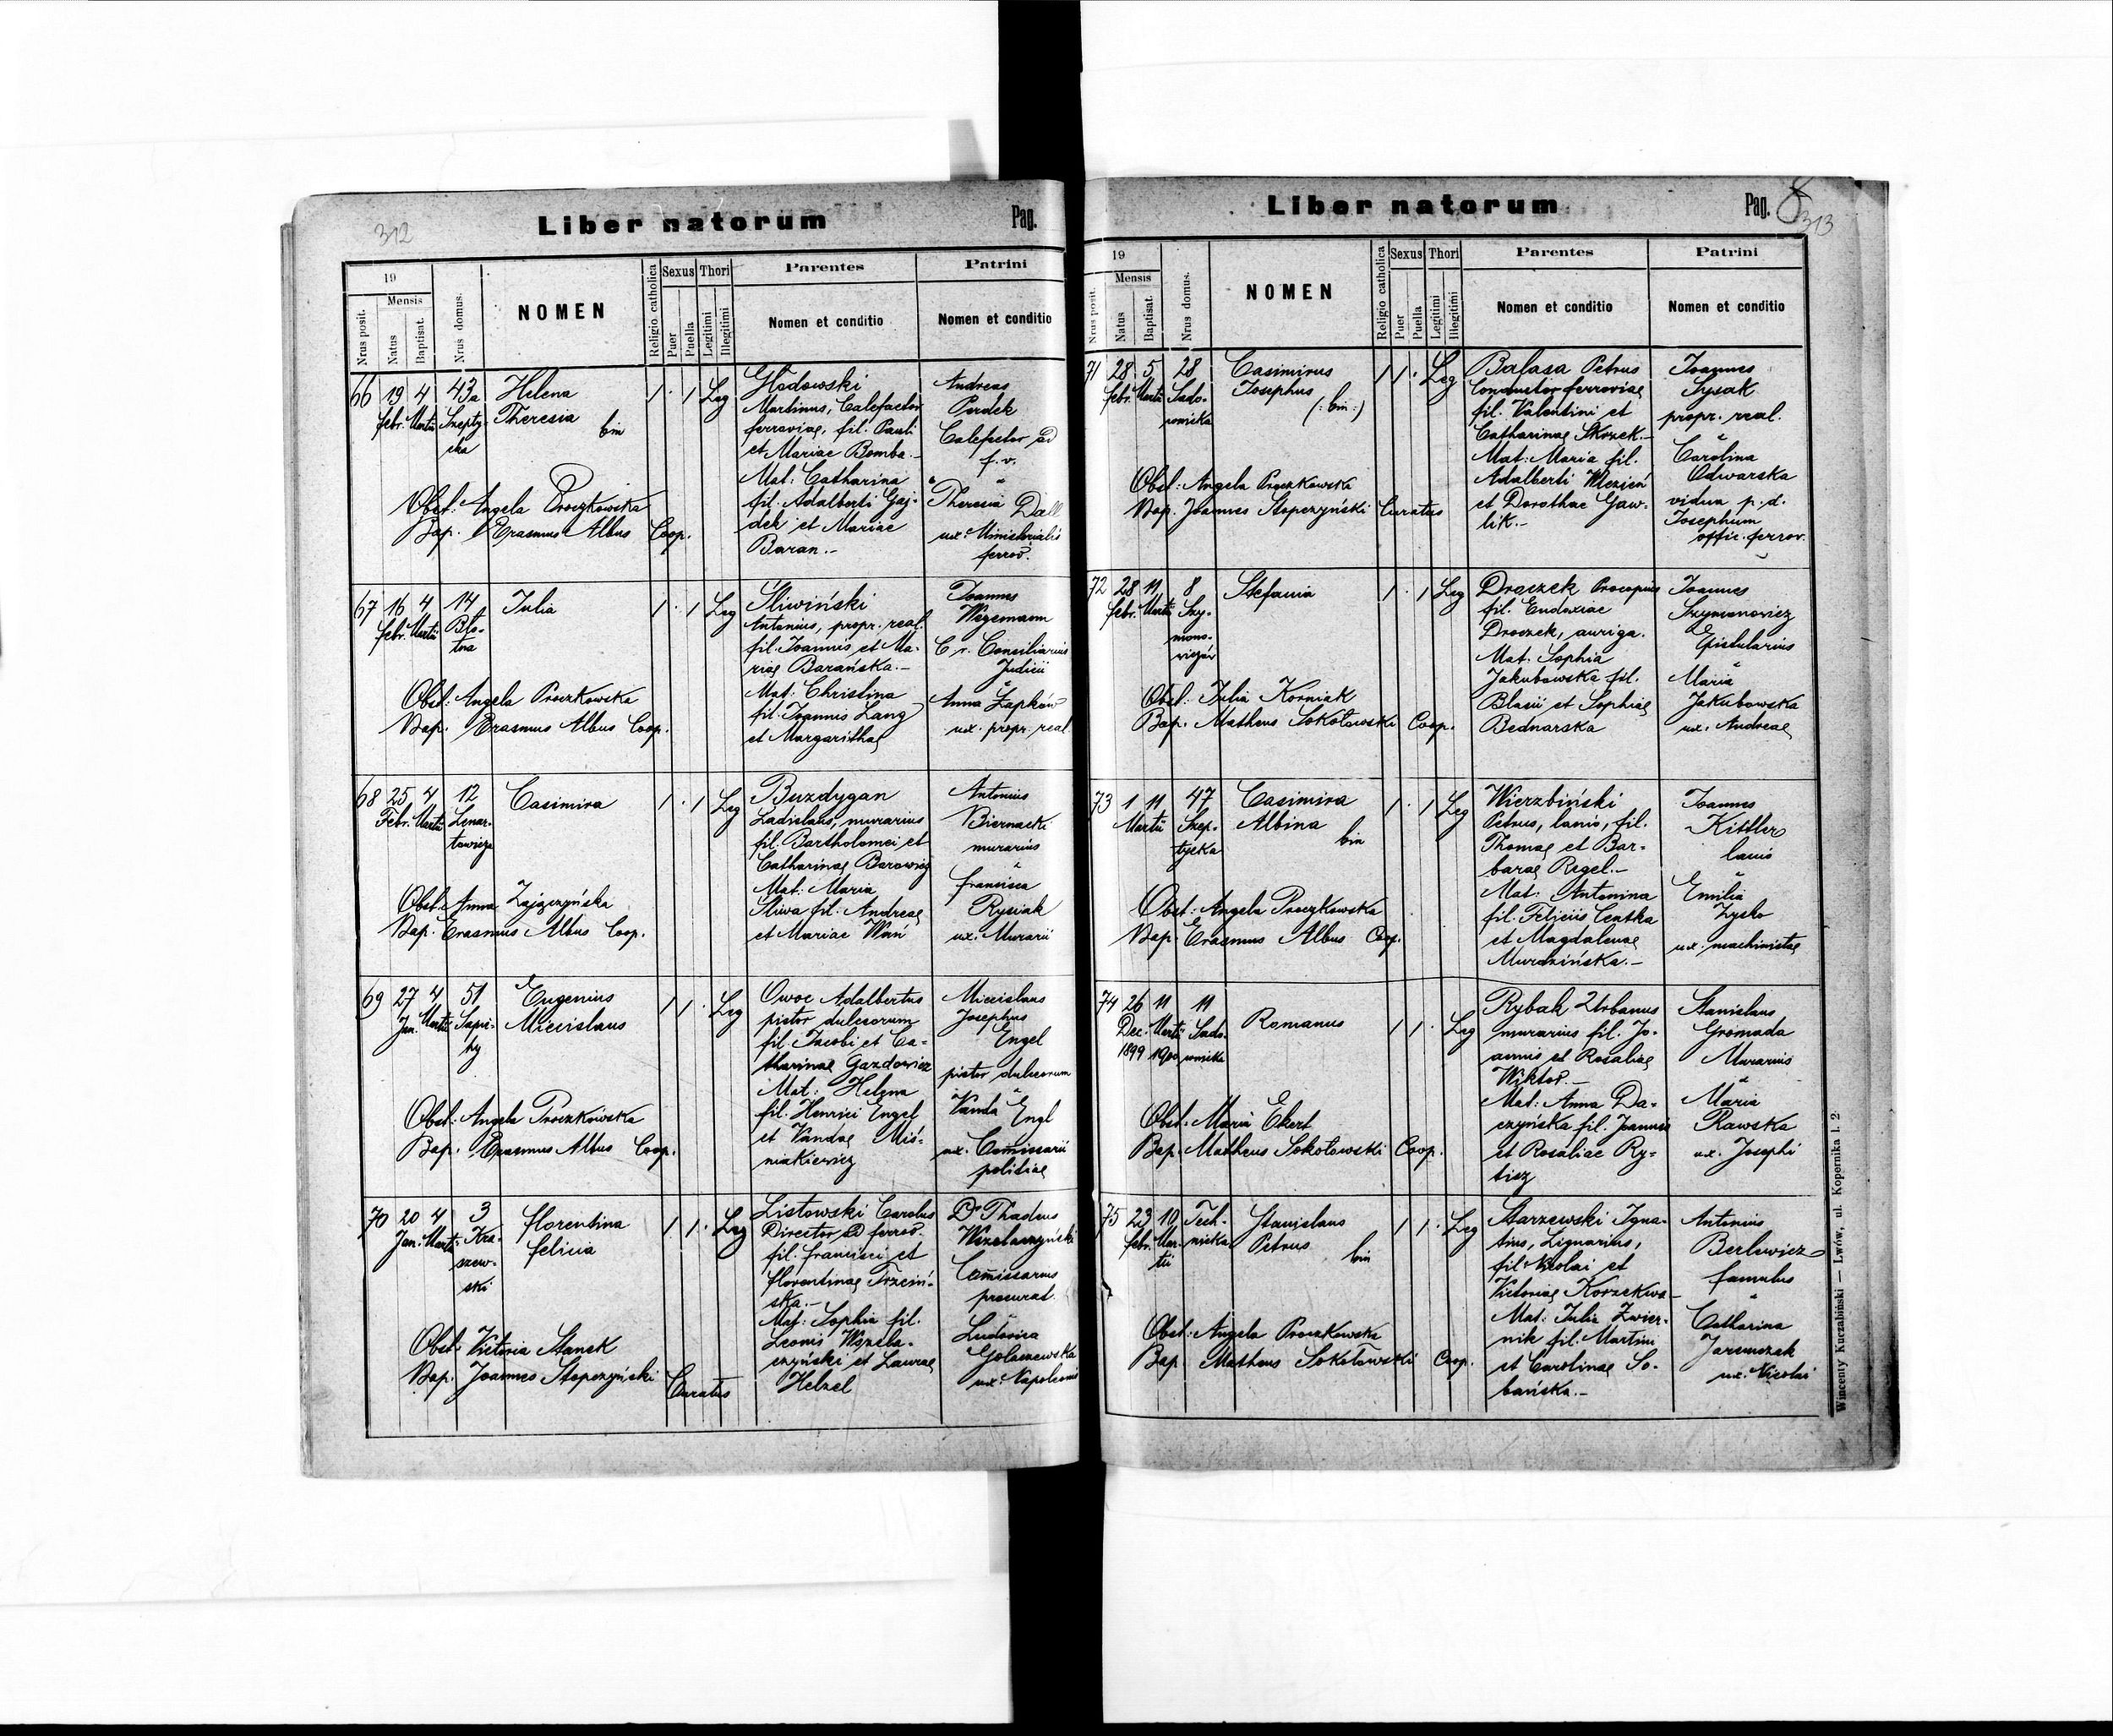 312
Liber natorum
Pag.
19
Mensis
Nrus posit.
Natus
Baptisat.
Nrus domus.
NOMEN
Religio catholica
Sexus
Puer
Puella
Thori
Legitimi
Illegitimi
Parentes
Nomen et conditio
Patrini
Nomen et conditio
66 19 4 43a Helena 1 · 1 Leg
febr. Martii Szepty-
cka
Theresia
bin
Głodowski
Martinus, Calefactor
ferroviae, fil. Pauli
et Mariae Bomba.-
Mat: Catharina
fil. Adalberti Gaj-
dek et Mariae
Baran.-
Andreas
Perdek
Calefector ad
f. v.
Theresia Dall
ux. Ministerialis
ferrov.
Obst: Angela Proczkowska
Bap. Erasmus Albus Coop.
67 16 4 14 Julia 1 · 1 Leg
febr. Martii Bło-
tna
Śliwiński
Antonius, propr. real.
fil. Joannis et Ma-
riae Barańska.-
Mat: Christina
fil. Joannis Lang
et Margarithae
Joannes
Wegemann
C. r. Consiliarius
Judicii
Anna Łapków
ux. propr. real.
Obst: Angela Proczkowska
Bap. Erasmus Albus Coop.
68 25 4 12 Casimira 1 · 1 Leg
Febr. Martii Lenar-
towicza
Buzdygan
Ladislaus, murarius
fil. Bartholomei et
Catharinae Barowicz
Mat: Maria
Śliwa fil. Andreae
et Mariae Wań
Antonius
Biernacki
murarius
Francisca
Rysiak
ux. Murarii
Obst: Anna Zajączyńska
Bap. Erasmus Albus Coop.
69 27 4 51 Eugenius 1 1 · Leg
Jan. Martii Sapie-
hy
Miecislaus
Owoc Adalbertus
pistor dulcorum
fil. Jacobi et Ca-
tharinae Gazdowicz
Mat: Helena
fil. Henrici Engel
et Vandae Miś-
niakiewicz
Miecislaus
Josephus
Engel
pistor dulcorum
Vanda Engl
ux. Comissarii
politiae
Obst: Angela Proczkowska
Bap. Erasmus Albus Coop.
70 20 4 3 Florentina 1 1 · Leg
Jan. Martii Kra-
szew-
ski
Felicia
Listowski Carolus
Director ad ferrov.
fil. Francisci et
Florentinae Trzciń-
ska.-
Mat: Sophia fil.
Leonis Wszela-
czyński et Laurae
Helzel
Dr Thadeus
Wszelaczyński
Comissarius
procurat.
Ludovica
Gołaszewska
ux. Napoleonis
Obst: Victoria Stanek
Bap. Joannes Stopczyński Curatus
Liber natorum
Pag. 8
313
19
Mensis
Nrus posit.
Natus
Baptisat.
Nrus domus.
NOMEN
Religio catholica
Sexus
Puer
Puella
Thori
Legitimi
Illegitimi
Parentes
Nomen et conditio
Patrini
Nomen et conditio
71 28 5 28 Casimirus 1 1 · Leg
febr. Martii Sado-
wnicka
Josephus
(: bin :)
Balasa Petrus
Conductor ferroviae
fil. Valentini et
Catharinae Skrzek.-
Mat: Maria fil.
Adalberti Mezień
et Dorothae Gaw-
lik.-
Joannes
Sysak
propr. real.
Carolina
Odwarska
vidua p. d.
Josephum
offic. ferrov.
Obst: Angela Proczkowska
Bap. Joannes Stopczyński Curatus
72 28 11 8 Stefania 1 · 1 Leg
febr. Martii Szy-
mono-
wiczów
Draczek Procopius
fil. Eudoxiae
Droczek, auriga.
Mat. Sophia
Jakubowska fil.
Blasii et Sophiae
Bednarska
Joannes
Szymonowicz
Epistularius
Maria
Jakubowska
ux. Andreae
Obst: Julia Korniak
Bap. Matheus Sokołowski Coop.
73 1 11 47 Casimira 1 · 1 Leg
Martii Szep-
tycka
Albina
bin
Wierzbiński
Petrus, lanio, fil.
Thomae et Bar-
barae Regel.-
Mat. Antonina
fil. Feliciis Centka
et Magdalenae
Murdzińska.-
Joannes
Kittler
lanio
Emilia
Zysko
ux. machinistae
Obst: Angela Proczkowska
Bap. Erasmus Albus Coop.
74 26 11 11 Romanus 1 1 · Leg
Dec. Martii Sado-
1899 1900 wnicka
Rybak Urbanus
murarius fil. Jo-
annis et Rosaliae
Wiktor.-
Mat: Anna Da-
czyńska fil. Joannis
et Rosaliae Ry-
tisz
Stanislaus
Gromada
Murarius
Maria
Rawska
ux. Josephi
Obst: Maria Ekert
Bap. Matheus Sokołowski Coop.
75 23 10 Tech- Stanislaus 1 1 · Leg
febr. Mar-
tii
nicka
Petrus
bin
Starzewski Igna-
tius, Lignarius,
fil. Nicolai et
Victoriae Korzekwa-
Mat: Julia Zwier-
nik fil. Martini
et Carolinae So-
bańska.-
Antonius
Berlewicz
famulus
Catharina
Jaremczak
ux. Nicolai
Obst: Angela Proczkowska
Bap. Matheus Sokołowski Coop.
Wincenty Kuczabiński — Lwów, ul. Kopernika l. 2